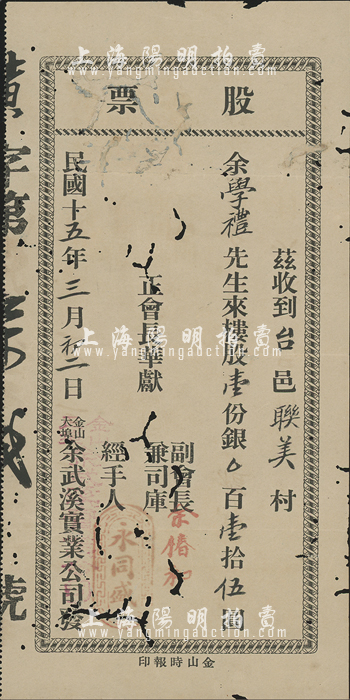 股票
茲收到台邑聯美村
余學禮先生來摟股壹份銀0百壹拾伍
正會長華獻
副會長
兼司庫
余椿和
經手人
民國十五年三月初一日
金山
大埠
余武溪實業公司發
永同
金山時報印
字第
號
上海陽明拍賣
www.yangmingauction.com
上海陽明拍賣
www.yangmingauction.com
上海陽明拍賣
www.yangmingauction.com